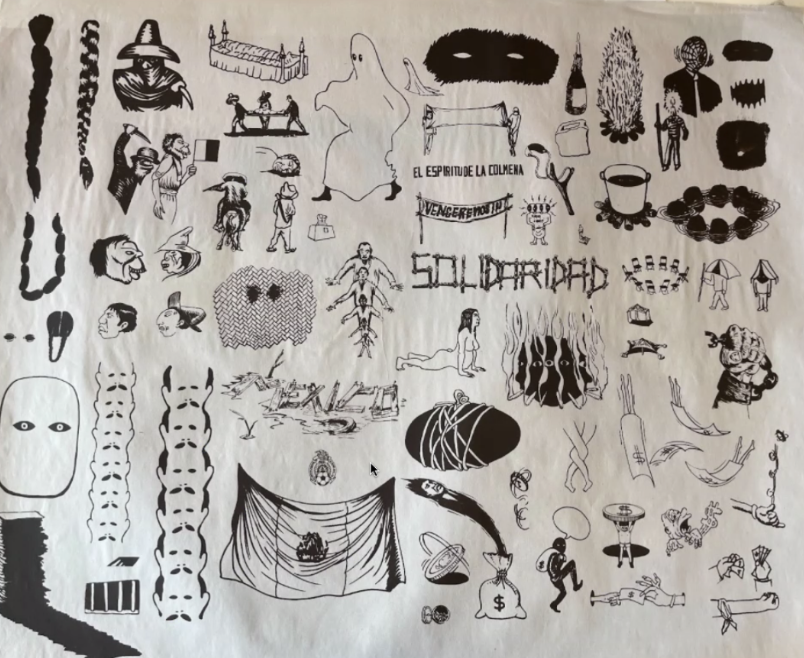 EL ESPIRITU DE LA COLMENA
VENCEREMOS!!!
SOLIDARIDAD
MEXICO
$
$